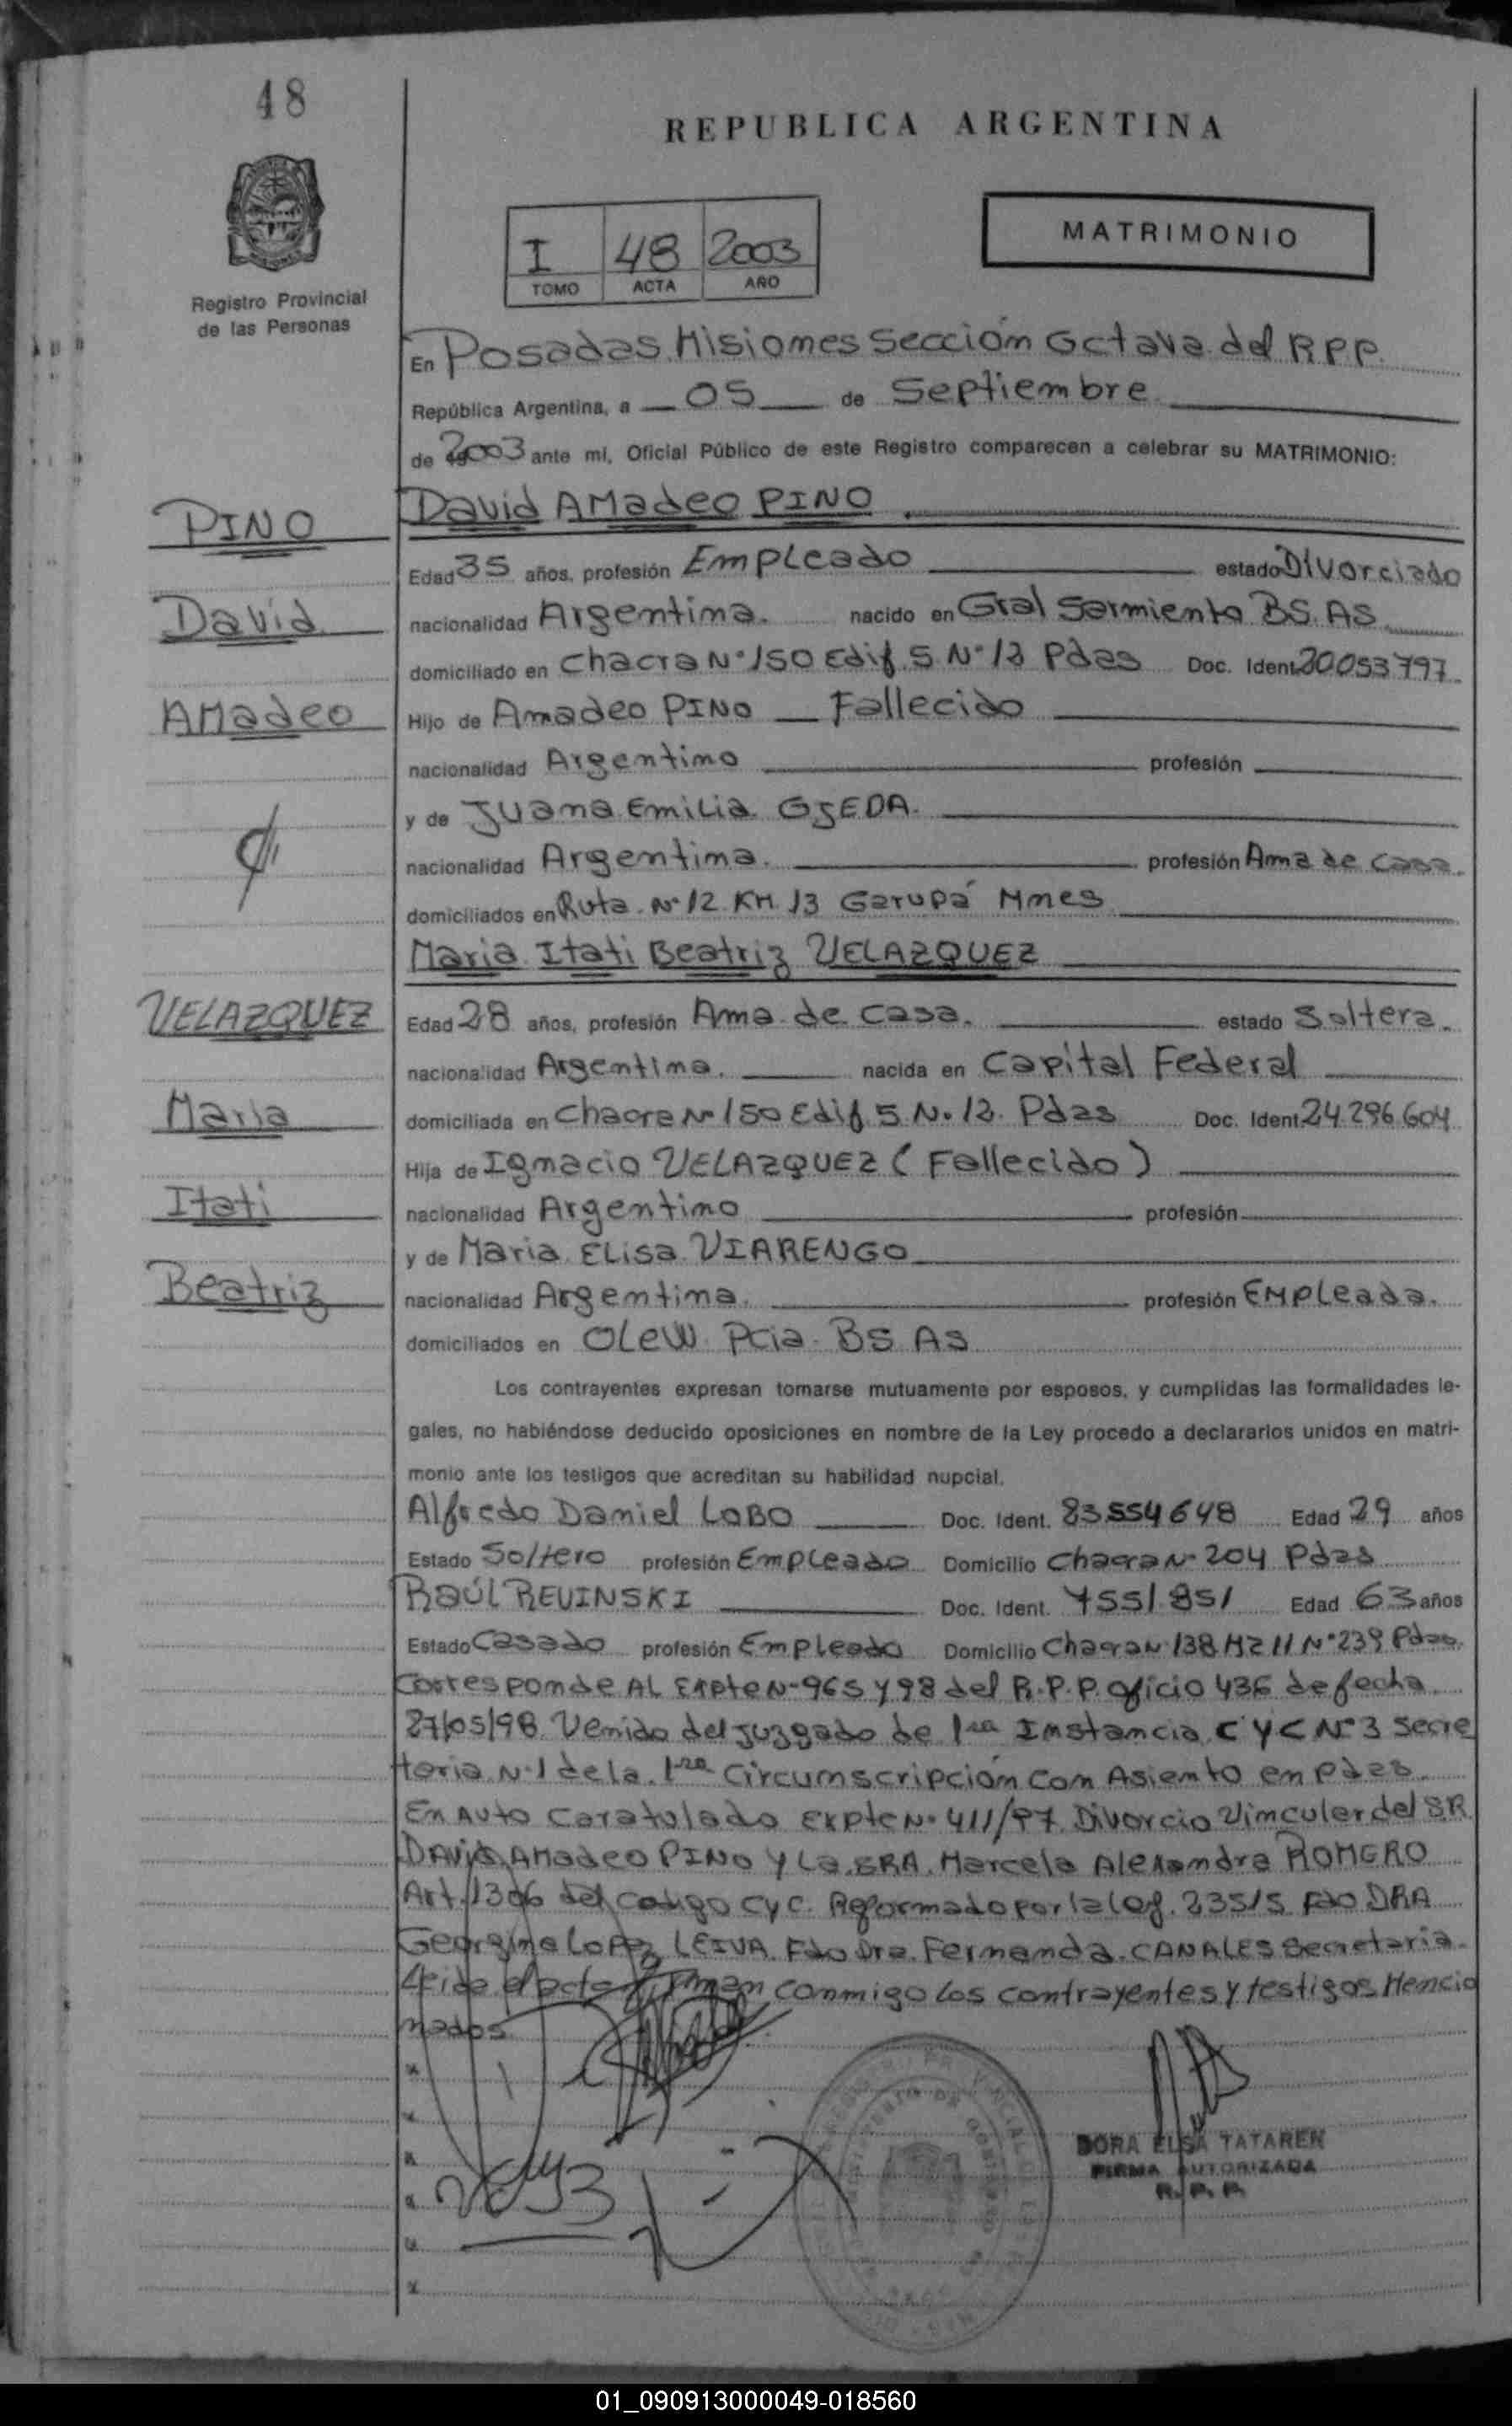 48
REPUBLICA ARGENTINA
MATRIMONIO
I 48 2003
TOMO ACTA AÑO
Registro Provincial
de las Personas
En Posadas Misiones Sección Octava del R P P.
República Argentina, a 05 de Septiembre
de 2003 ante mi, Oficial Público de este Registro comparecen a celebrar su MATRIMONIO:
PINO
David Amadeo PINO
Edad 35 años, profesión Empleado estado Divorciado
David
nacionalidad Argentina. nacido en Gral Sarmiento BS. AS
domiciliado en Chacra N° 150 Edif. 5 N° 12 Pdas Doc. Ident. 20053797
Amadeo
Hijo de Amadeo PINO Fallecido
nacionalidad Argentino profesión
y de Juana Emilia OJEDA.
nacionalidad Argentina. profesión Ama de Casa.
domiciliados en Ruta N° 12 KM 13 Garupá Mnes
Maria Itati Beatriz VELAZQUEZ
VELAZQUEZ
Edad 28 años, profesión Ama de Casa. estado Soltera.
nacionalidad Argentina. nacida en Capital Federal
Maria
domiciliada en Chacra N° 150 Edif. 5 N° 12. Pdas Doc. Ident. 24.296.604
Hija de Ignacio VELAZQUEZ (Fallecido)
Itati
nacionalidad Argentino profesión
y de Maria Elisa VIARENGO
Beatriz
nacionalidad Argentina. profesión Empleada.
domiciliados en Pcia BS AS
Los contrayentes expresan tomarse mutuamente por esposos, y cumplidas las formalidades le-
gales, no habiéndose deducido oposiciones en nombre de la Ley procedo a declararlos unidos en matri-
monio ante los testigos que acreditan su habilidad nupcial.
Alfredo Daniel LOBO Doc. Ident. Edad 29 años
Estado Soltero profesión Empleado Domicilio Chacra N° 204 Pdas
RAÚL REVINSKI Doc. Ident. 7551.851 Edad 63 años
Estado Casado profesión Empleado Domicilio Chacra N° 138 MZ 11 N° 239 Pdas.
Corresponde AL Expte N° 965 y 98 del R.P.P. oficio 436 de fecha
27/05/98 Venido del Juzgado de 1ra Instancia C y C N° 3 Secre
toria N° 1 de la 1ra Circunscripción Con Asiento en Pdas
En Auto Caratulado Expte N° 411/97 Divorcio Vincular del SR.
David Amadeo PINO y La SRA. Marcela Alexandra ROMERO
Art. 1306 del Codigo C y C. Reformado por la Ley. 23515 Fdo DRA
Georgina Lopez LEIVA Fdo Dra. Fernanda CANALES Secretaria.
Leida el acta firman conmigo los contrayentes y testigos Mencio
nados
DORA ELSA TATAREN
FIRMA AUTORIZADA
R. P. P.
01_090913000049-018560